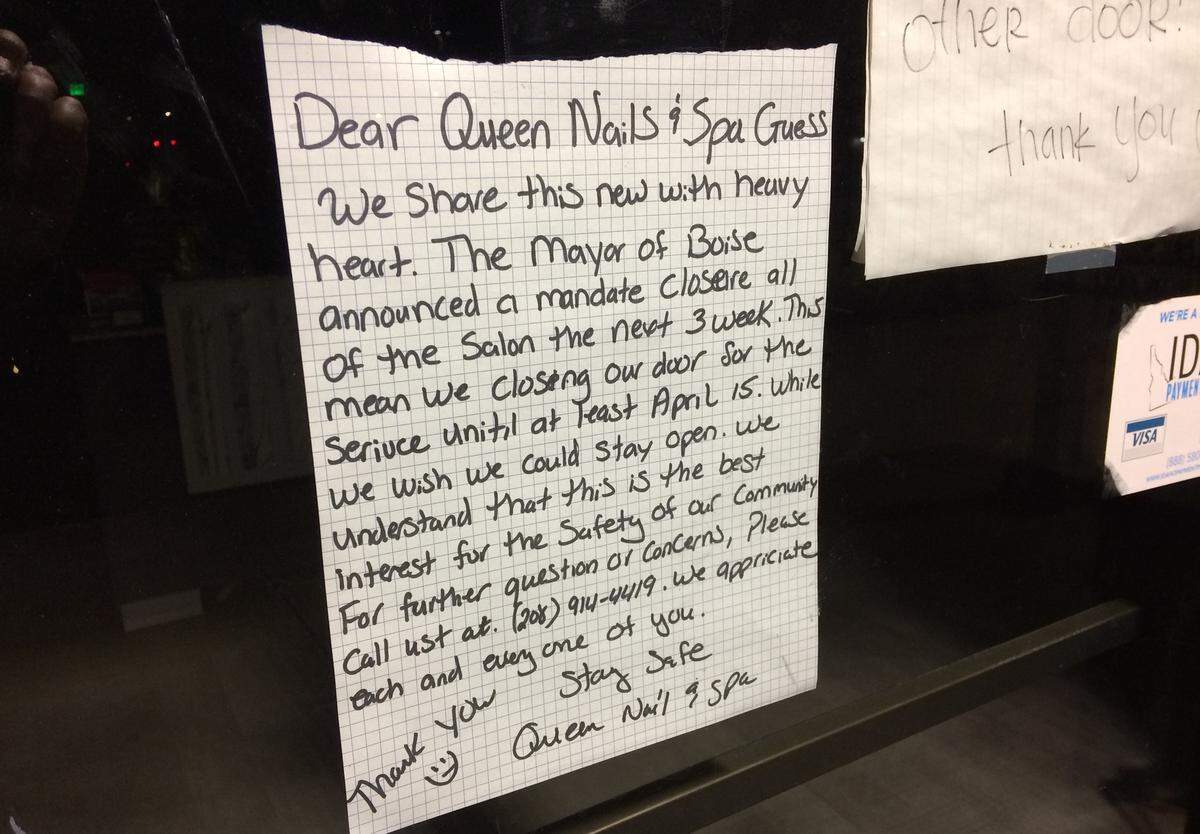 Dear Queen Nails & Spa Guess
We Share this new with heavy
heart. The Mayor of Boise
announced a mandate Closeire all
of the Salon the next 3 week. This
mean we closing our door for the
Seriuce unitil at least April 15. While
we wish we could stay open. we
understand that this is the best
interest for the Safety of our Community
For further question or concerns, Please
Call ust at. (208) 914-4419. we appriciate
each and every one of you.
Thank you Stay Safe
Queen Nail & Spa
other door!
thank you
WE'RE A
ID
PAYMEN
VISA